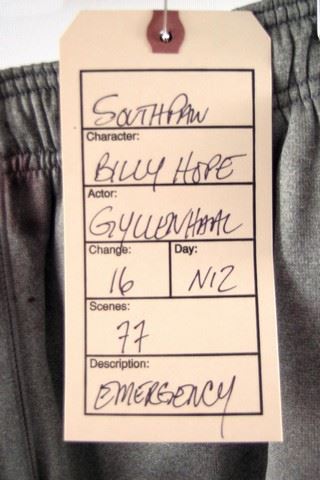 SOUTHPAW
Character:
BILLY HOPE
Actor:
GYLLENHAAL
Change: Day:
16 N12
Scenes:
77
Description:
EMERGENCY